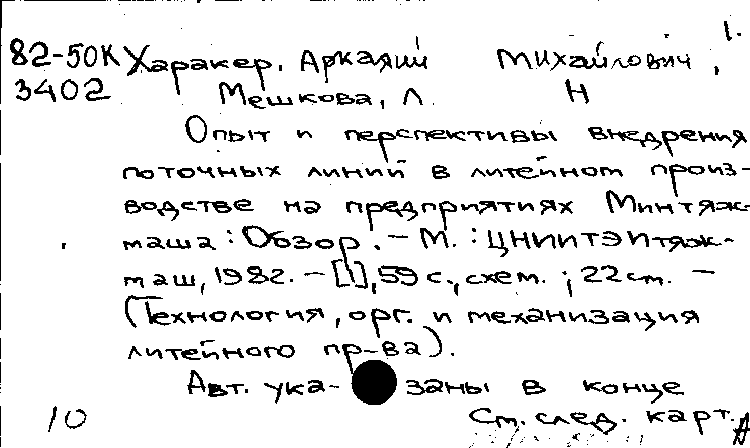 1.
82-50К Характер, Аркадий Михайлович,
3402 Мешкова, Л Н
Опыт и перспективы внедрения
поточных линий в литейном произ-
водстве на предприятиях Минтяж-
маша : Обзор. - М. : ЦНИИТЭИтяж-
маш, 1982. - [1], 59 с., схем. ; 22 см. -
(Технология, орг. и механизация
литейного пр-ва).
Авт. ука- заны в конце
10 См. след. карт.